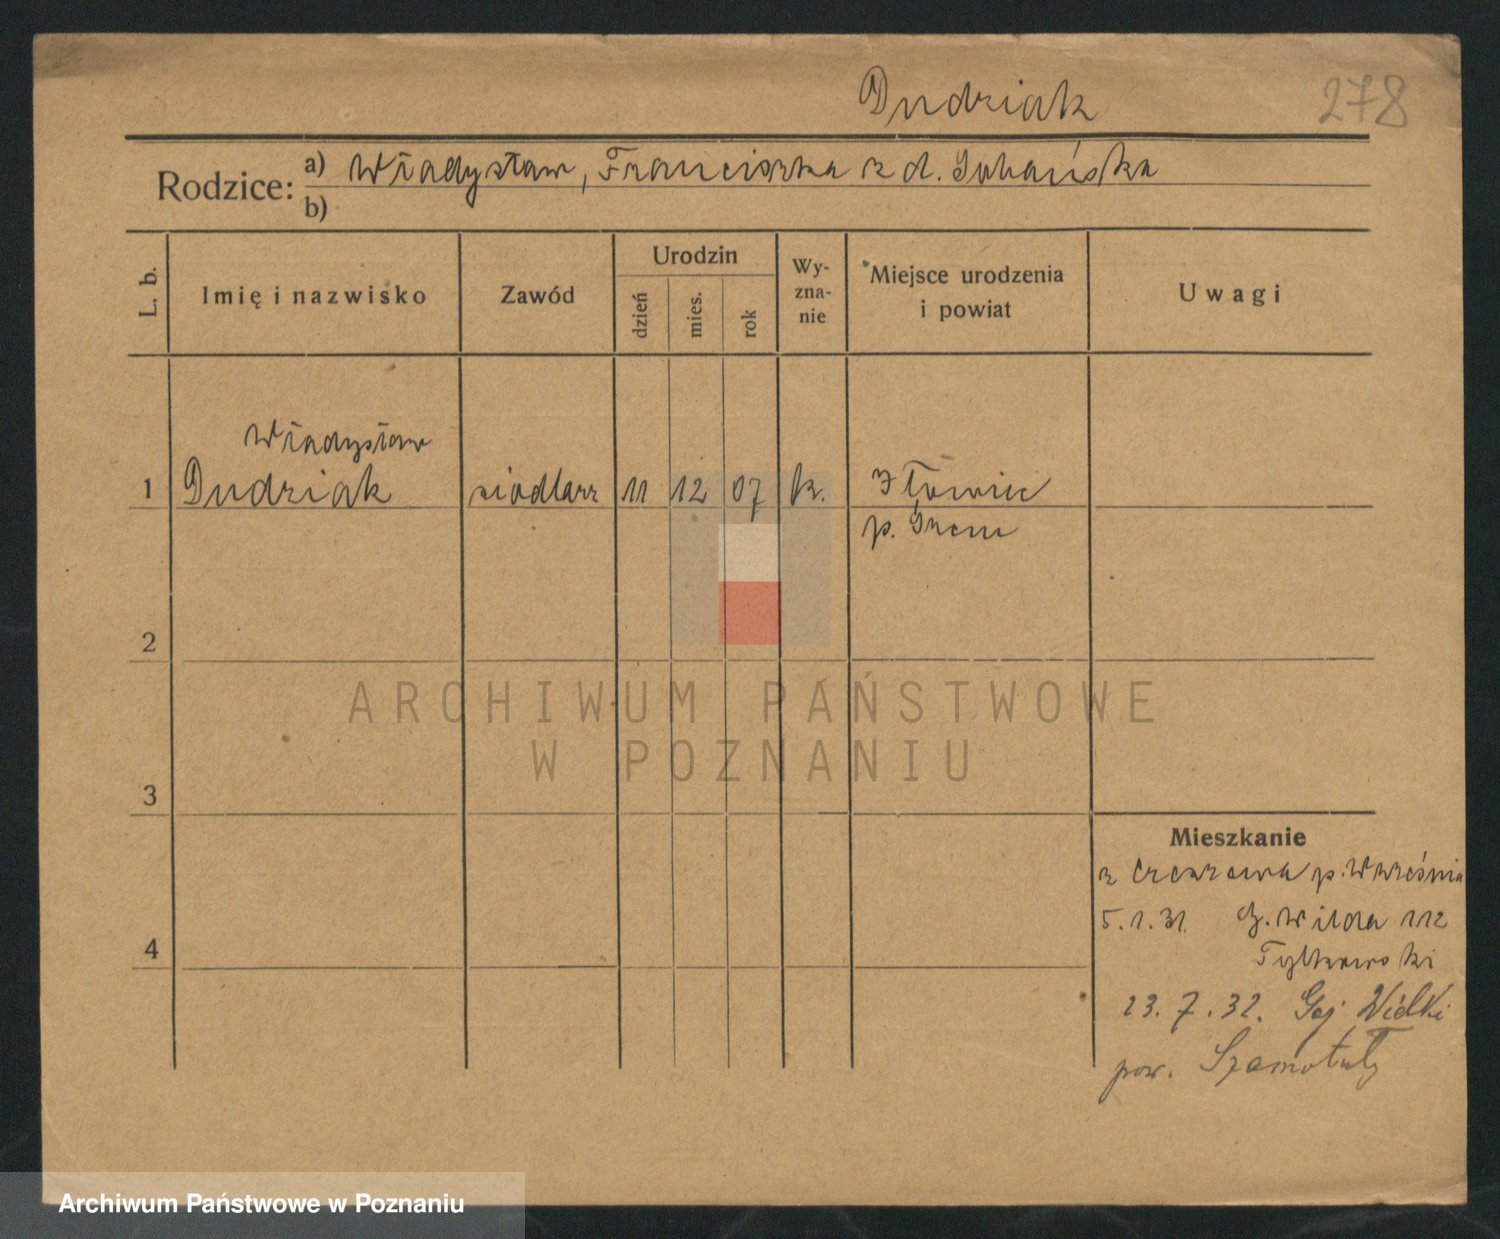 Dudziak 278
Rodzice: a) Władysław, Franciszka z d.
b)
L. b.
Imię i nazwisko
Zawód
Urodzin
dzień
mies.
rok
Wy-
zna-
nie
Miejsce urodzenia
i powiat
Uwagi
Władysław
1 Dudziak siodlarz 11 12 07 k. Iłowiec
p. Śrem
2
3
4
ARCHIWUM PAŃSTWOWE
W POZNANIU
Mieszkanie
z p. Września
5.1.31. G. Wilda 112
Tylkowski
23.7.32. Gaj Wielki
pow. Szamotuły
Archiwum Państwowe w Poznaniu